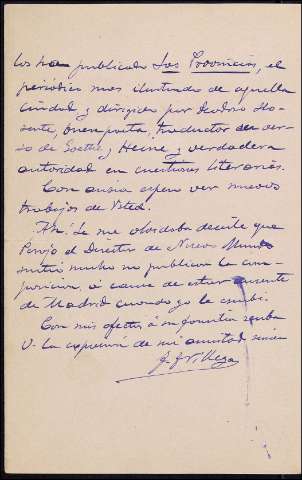 los ha publicado Las Provincias, el
periódico mas ilustrado de aquella
ciudad y dirigido por Teodoro Llo-
rente, buen poeta, traductor en verso
de Goethe y Heine y verdadera
autoridad en cuestiones literarias.
Con ansia espero ver nuevos
trabajos de Usted.
Ah. Se me olvidaba decirle que
Perojo el Director de Nuevo Mundo
sintió mucho no publicar la com-
posicion, á causa de estar ausente
de Madrid cuando yo la envié.
Con mis afectos á su familia reciba
V. la expresion de mi amistad sincera